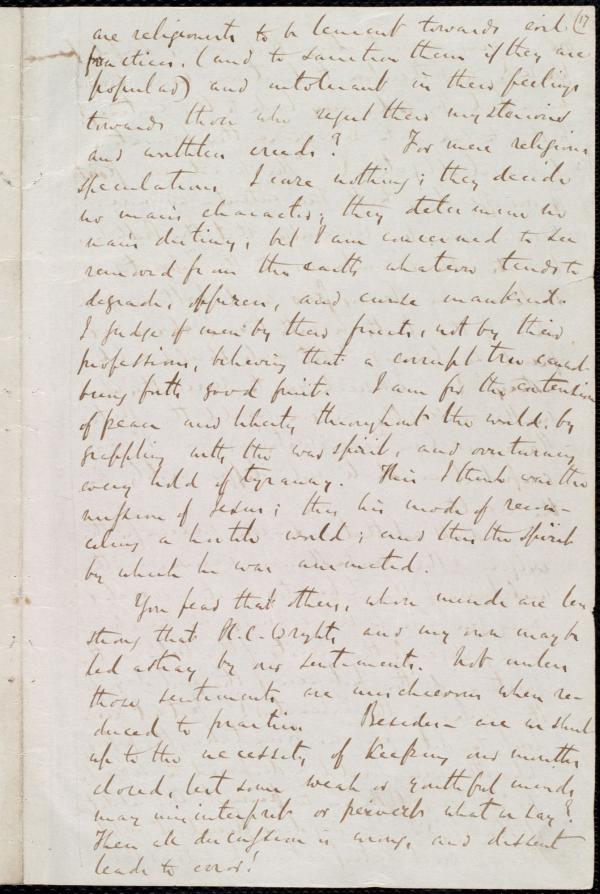 (17
are religionists to be lenient towards evil
practices, (and to sanction them if they are
popular) and intolerant in their feelings
towards those who reject their mysterious
and worthless creeds? For mere religious
speculations I care nothing; they decide
no man's character, they determine no
man's destiny; but I am concerned to see
removed from the earth whatever tends to
degrade, oppress, and curse mankind.
I judge of men by their fruits, not by their
professions, believing that a corrupt tree cannot
bring forth good fruit. I am for the
of peace and liberty throughout the world, by
grappling with the war spirit, and overturning
every hold of tyranny. This I think was the
mission of Jesus; this his mode of recon-
ciling a hostile world; and this the spirit
by which he was animated.
You fear that others, whose minds are less
strong that H. C. Wright's and my own may be
led astray by our sentiments. Not unless
those sentiments are mischievous when re-
duced to practice. Besides— are we shut
up to the necessity of keeping our mouths
closed, lest some weak or youthful minds
may misinterpret or pervert what we say?
Then all discussion is wrong, and dissent
leads to error!